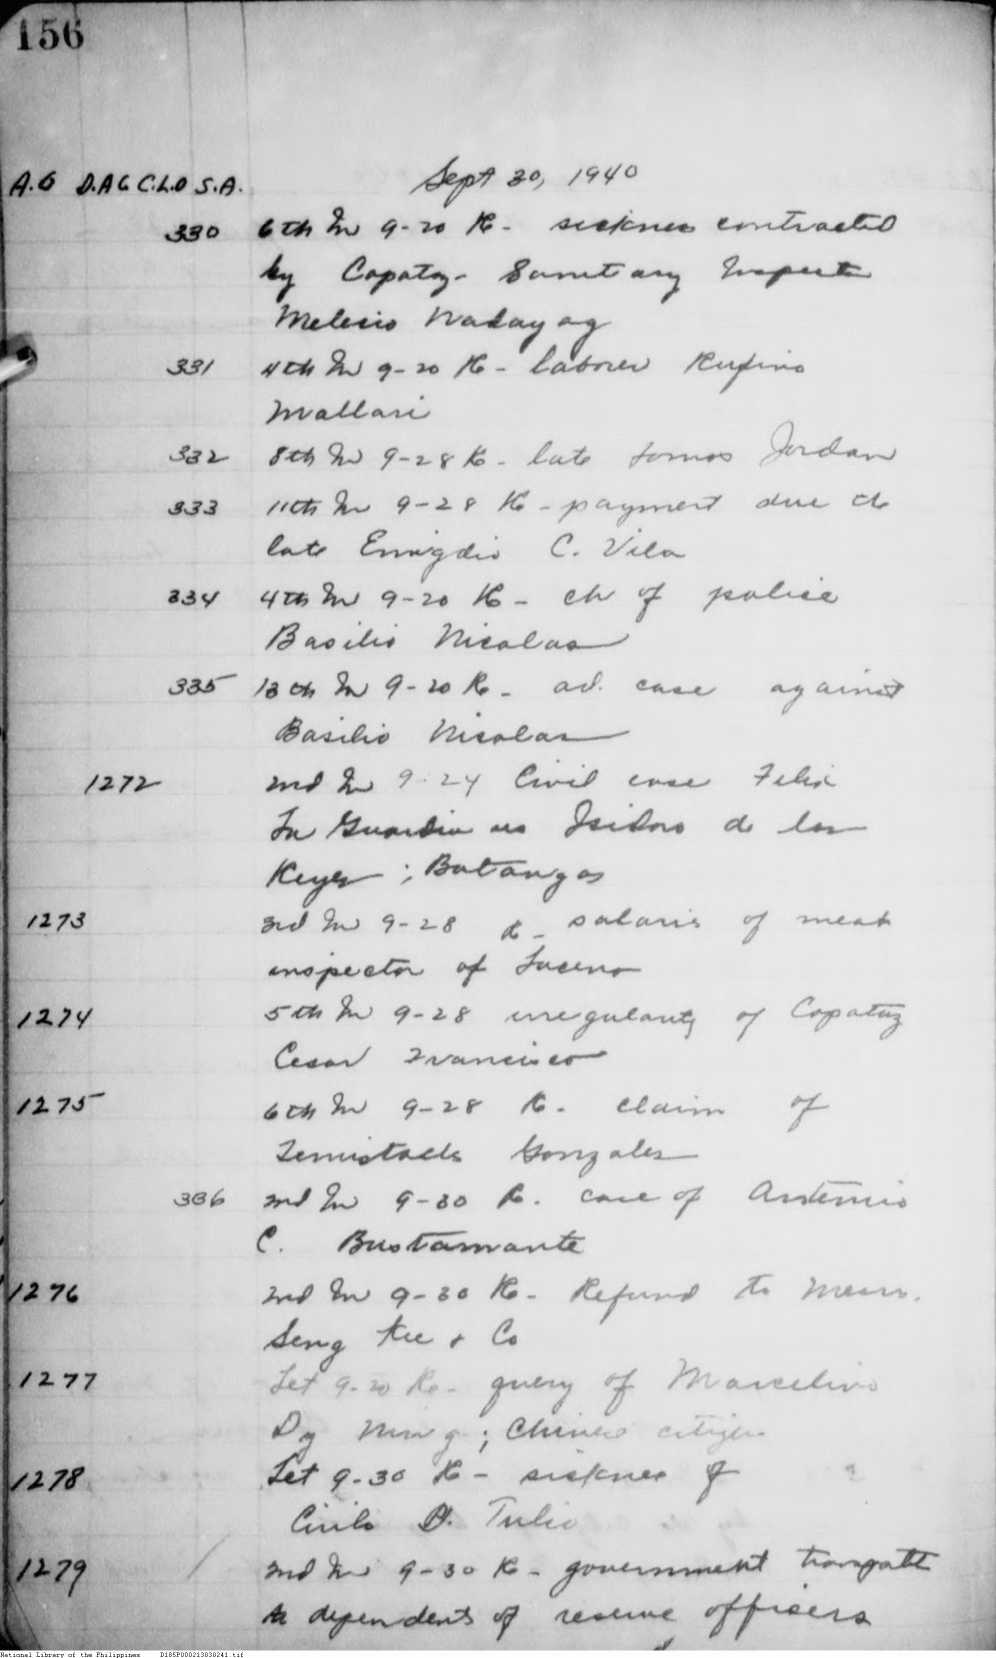 156
Sept 30, 1940
A.G D.AG C.L.O S.A.
330 6th In 9-20 Re- sickness contracted
by Capataz- Sanitary Inspector
Melecio Nadayag
331 4th In 9-20 Re - laborer Rufino
Mallari
332 8th In 9-28 Re - late Tomas Jordan
333 11th In 9-28 Re - payment due the
late Emigdio C. Vila
334 4th In 9-20 Re - ch of police
Basilio Nicolas
335 13th In 9-20 Re - ad. case against
Basilio Nicolas
1272 2nd In 9-24 Civil case Felix
La Guardia vs Isidoro de los
Reyes ; Batangas
1273 3rd In 9-28 Re - salaries of meat
inspector of Lucena
1274 5th In 9-28 irregularity of Capataz
Cesar Francisco
1275 6th In 9-28 Re. claim of
Temistocles Gonzales
336 2nd In 9-30 Re. case of Artemio
C. Bustamante
1276 2nd In 9-30 Re- Refund to Messrs.
Seng Kee & Co
1277 Let 9-20 Re- query of Marcelino
Dy Ning ; Chinese citizen
1278 Let 9-30 Re - sickness of
Cirilo D. Tulio
1279 2nd In 9-30 Re - government
to dependents of reserve officers
National Library of the Philippines D185P000213030241.tif